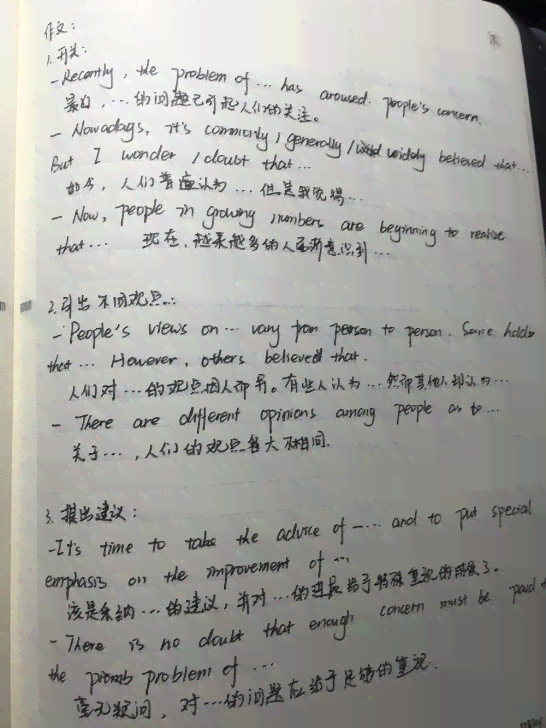 作文:
1. 开头:
- Recently, the problem of ... has aroused people's concern.
最近, ... 的问题已引起人们的关注。
- Nowadays, it's commonly / generally / widely believed that...
But I wonder / doubt that...
如今, 人们普遍认为 ... 但是我觉得 ...
- Now, people in growing numbers are beginning to realize
that ... 现在, 越来越多的人逐渐意识到 ...
2. 引出不同观点:
- People's views on ... vary from person to person. Some holds
that ... However, others believed that.
人们对 ... 的观点因人而异。有些人认为 ... 然而其他人却认为 ...
- There are different opinions among people as to ...
关于 ... , 人们的观点各大不相同.
3. 提出建议:
- It's time to take the advice of ... and to put special
emphasis on the improvement of ...
该是采纳 ... 的建议, 并对 ... 的进展给予特殊重视的时候了。
- There is no doubt that enough concern must be paid t
the problem of ...
毫无疑问, 对 ... 的问题应给予足够的重视.